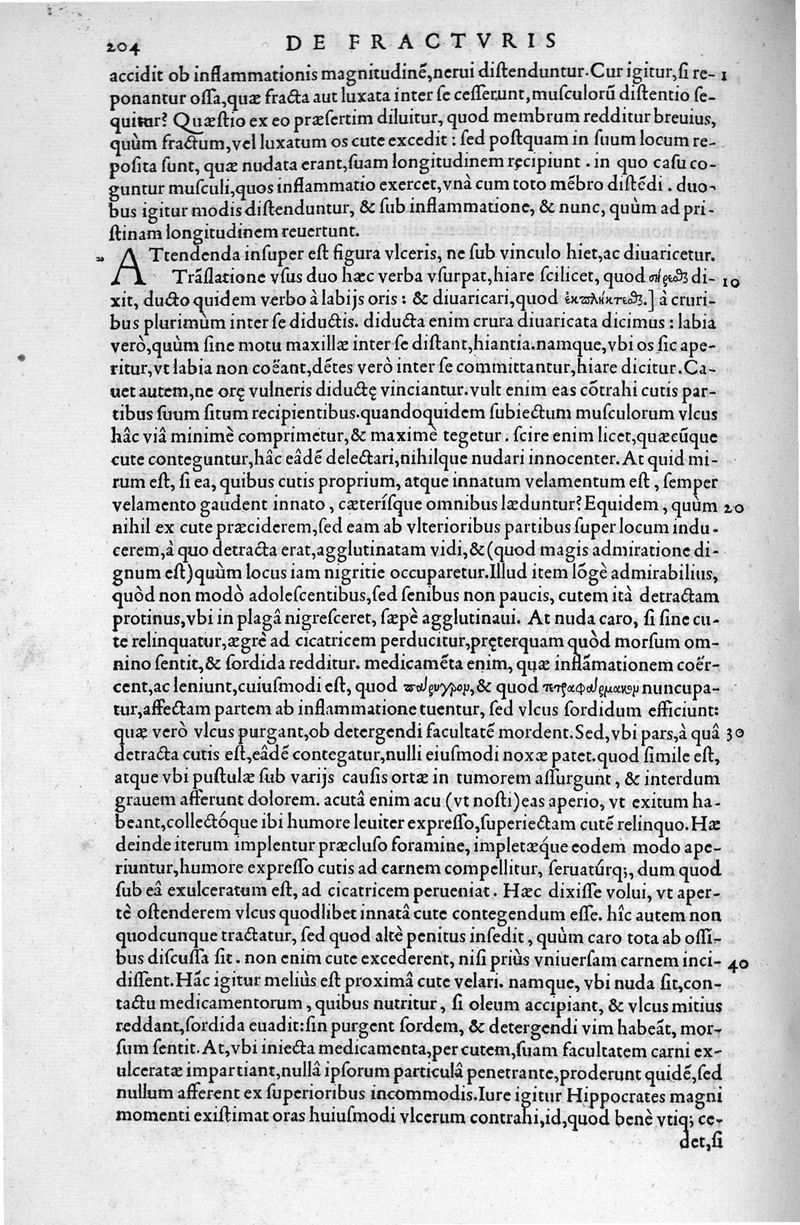 204 DE FRACTVRIS
accidit ob inflammationis magnitudinē,nerui diſtenduntur.Cur igitur,ſi re- 1
ponantur oſſa,quæ fracta aut luxata inter ſe ceſſerunt,muſculorū diſtentio ſe-
quitur? Quæſtio ex eo præſertim diluitur, quod membrum redditur breuius,
quùm fractum,vel luxatum os cute excedit : ſed poſtquam in ſuum locum re-
poſita ſunt, quæ nudata erant,ſuam longitudinem recipiunt . in quo caſu co-
guntur muſculi,quos inflammatio exercet,vnà cum toto mēbro diſtēdi . duo-
bus igitur modis diſtenduntur, & ſub inflammatione, & nunc, quùm ad pri-
ſtinam longitudinem reuertunt.
ATtendenda inſuper eſt figura vlceris, ne ſub vinculo hiet,ac diuaricetur.
Trāſlatione vſus duo hæc verba vſurpat,hiare ſcilicet, quod di- 10
xit, ducto quidem verbo à labijs oris : & diuaricari,quod .] à cruri-
bus plurimùm inter ſe diductis. diducta enim crura diuaricata dicimus : labia
verò,quùm ſine motu maxillæ inter ſe diſtant,hiantia.namque,vbi os ſic ape-
ritur,vt labia non coëant,dētes verò inter ſe committantur,hiare dicitur.Ca-
uet autem,ne orę vulneris diductę vinciantur.vult enim eas cōtrahi cutis par-
tibus ſuum ſitum recipientibus.quandoquidem ſubiectum muſculorum vlcus
hâc viâ minimè comprimetur,& maximè tegetur . ſcire enim licet,quæcūque
cute conteguntur,hâc eâdē delectari,nihilque nudari innocenter. At quid mi-
rum eſt, ſi ea, quibus cutis proprium, atque innatum velamentum eſt , ſemper
velamento gaudent innato , cæteríſque omnibus læduntur? Equidem , quùm 20
nihil ex cute præciderem,ſed eam ab vlterioribus partibus ſuper locum indu-
cerem,à quo detracta erat,agglutinatam vidi,&(quod magis admiratione di-
gnum eſt)quùm locus iam nigritie occuparetur.Illud item lōgè admirabilius,
quòd non modò adoleſcentibus,ſed ſenibus non paucis, cutem ità detractam
protinus,vbi in plagâ nigreſceret, ſæpè agglutinaui. At nuda caro, ſi ſine cu-
te relinquatur,ægrè ad cicatricem perducitur,pręterquam quòd morſum om-
nino ſentit,& ſordida redditur. medicamēta enim, quæ inflāmationem coër-
cent,ac leniunt,cuiuſmodi eſt, quod πάρυγρον,& quod τετραφάρμακον nuncupa-
tur,affectam partem ab inflammatione tuentur, ſed vlcus ſordidum efficiunt:
quæ verò vlcus purgant,ob detergendi facultatē mordent.Sed,vbi pars,à quâ 30
detracta cutis eſt,eâdē contegatur,nulli eiuſmodi noxæ patet.quod ſimile eſt,
atque vbi puſtulæ ſub varijs cauſis ortæ in tumorem aſſurgunt , & interdum
grauem afferunt dolorem. acutâ enim acu (vt noſti)eas aperio, vt exitum ha-
beant,collectóque ibi humore leuiter expreſſo,ſuperiectam cutē relinquo.Hæ
deinde iterum implentur præcluſo foramine, impletæque eodem modo ape-
riuntur,humore expreſſo cutis ad carnem compellitur, ſeruatúrq;, dum quod
ſub eâ exulceratum eſt, ad cicatricem perueniat . Hæc dixiſſe volui, vt aper-
tè oſtenderem vlcus quodlibet innatâ cute contegendum eſſe. hîc autem non
quodcunque tractatur, ſed quod altè penitus inſedit , quùm caro tota ab oſſi-
bus diſcuſſa ſit . non enim cute excederent, niſi priùs vniuerſam carnem inci- 40
diſſent.Hāc igitur meliùs eſt proximâ cute velari. namque, vbi nuda ſit,con-
tactu medicamentorum , quibus nutritur , ſi oleum accipiant, & vlcus mitius
reddant,ſordida euadit:ſin purgent ſordem, & detergendi vim habeāt, mor-
ſum ſentit. At,vbi iniecta medicamenta,per cutem,ſuam facultatem carni ex-
ulceratæ impartiant,nullâ ipſorum particulâ penetrante,proderunt quidē,ſed
nullum afferent ex ſuperioribus incommodis.Iure igitur Hippocrates magni
momenti exiſtimat oras huiuſmodi vlcerum contrahi,id,quod benè vtiq; ce-
det,ſi